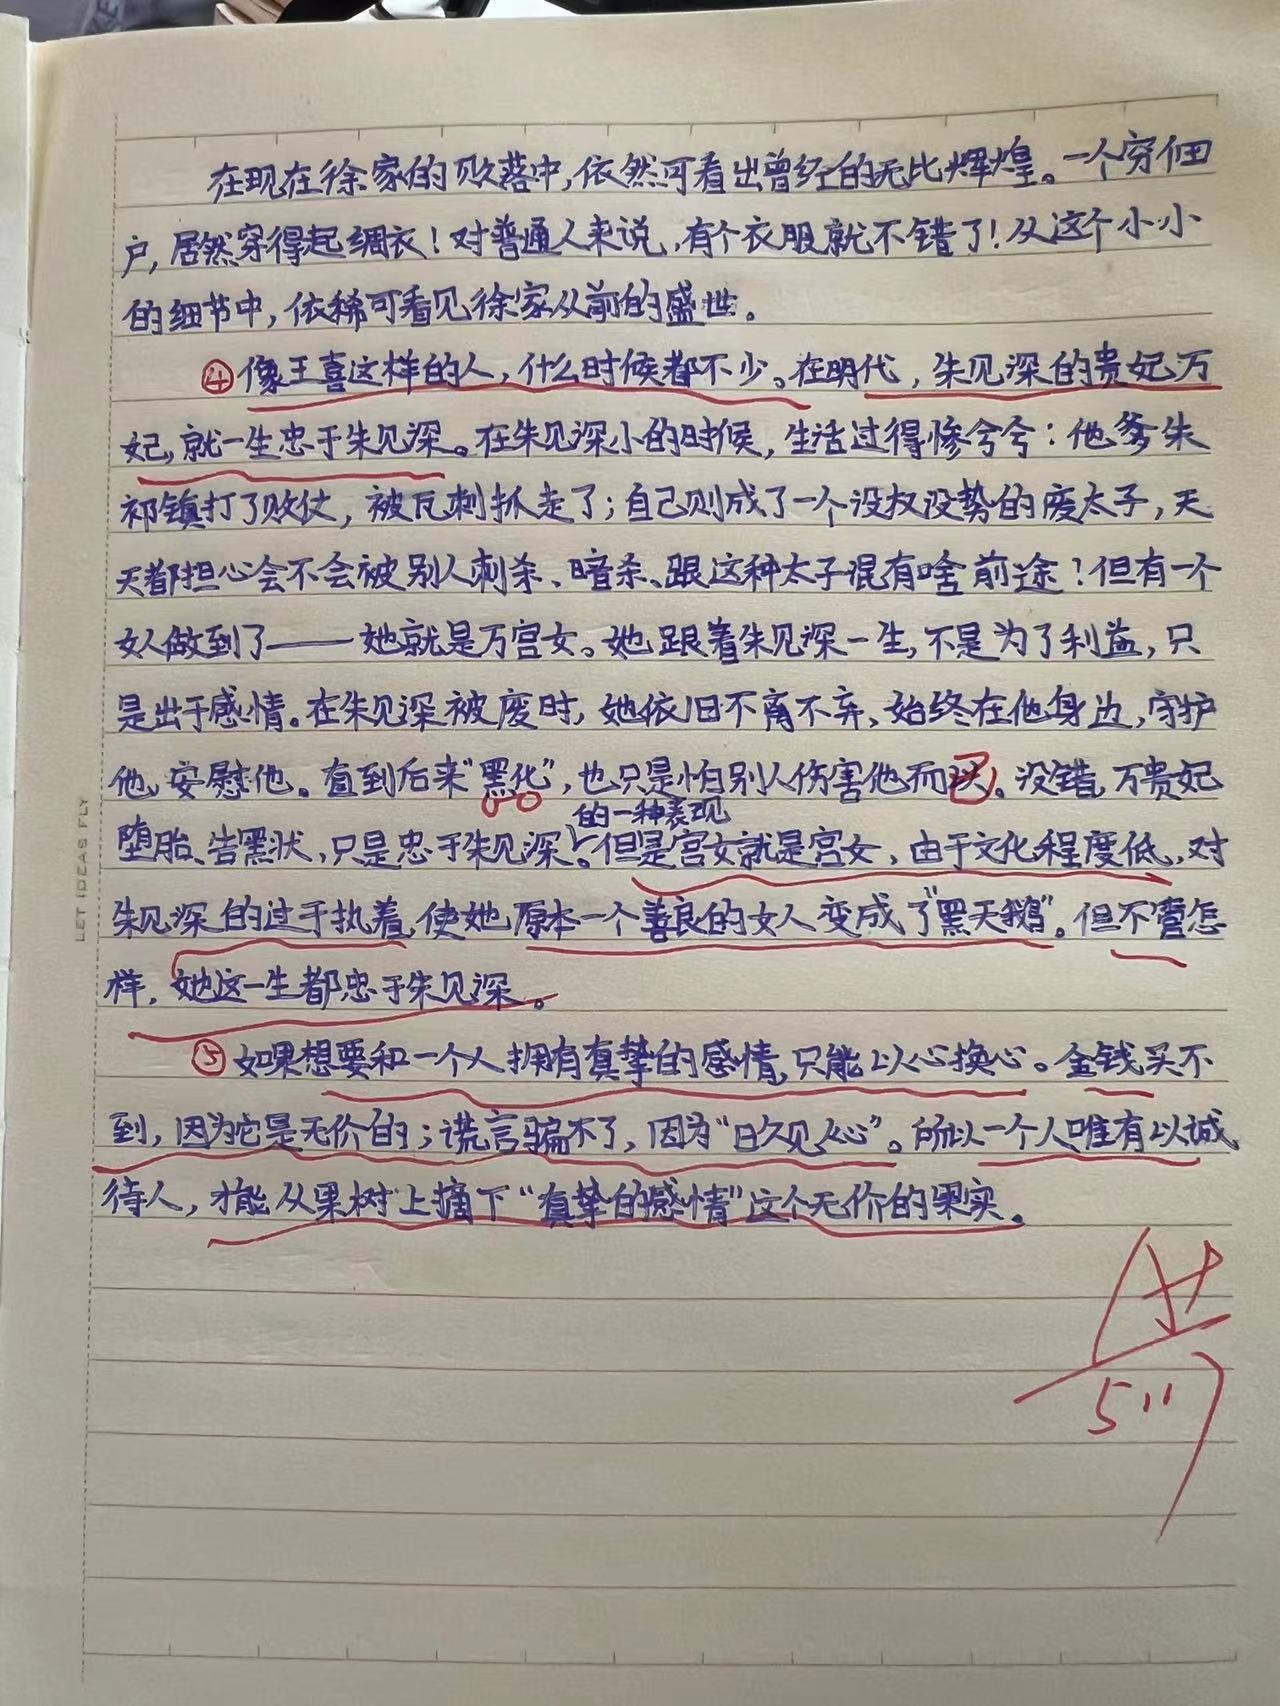 在现在徐家的败落中，依然可看出曾经的无比辉煌。一个穷佃
户，居然穿得起绸衣！对普通人来说，有个衣服就不错了！从这个小小
的细节中，依稀可看见徐家从前的盛世。
④像王喜这样的人，什么时候都不少。在明代，朱见深的贵妃万
妃，就一生忠于朱见深。在朱见深小的时候，生活过得惨兮兮：他爹朱
祁镇打了败仗，被瓦刺抓走了；自己则成了一个没权没势的废太子，天
天都担心会不会被别人刺杀、暗杀、跟这种太子混有啥前途！但有一个
女人做到了——她就是万宫女。她跟着朱见深一生，不是为了利益，只
是出于感情。在朱见深被废时，她依旧不离不弃，始终在他身边，守护
他，安慰他。直到后来“黑化”，也只是怕别人伤害他而已。没错，万贵妃
的一种表现
堕胎、告黑状，只是忠于朱见深。但是宫女就是宫女，由于文化程度低，对
朱见深的过于执着，使她原本一个善良的女人变成了“黑天鹅”。但不管怎
样，她这一生都忠于朱见深。
⑤如果想要和一个人拥有真挚的感情，只能以心换心。金钱买不
到，因为它是无价的；谎言骗不了，因为“日久见人心”。所以一个人唯有以诚
待人，才能从果树上摘下“真挚的感情”这个无价的果实。
LET IDEAS FLY
5.11